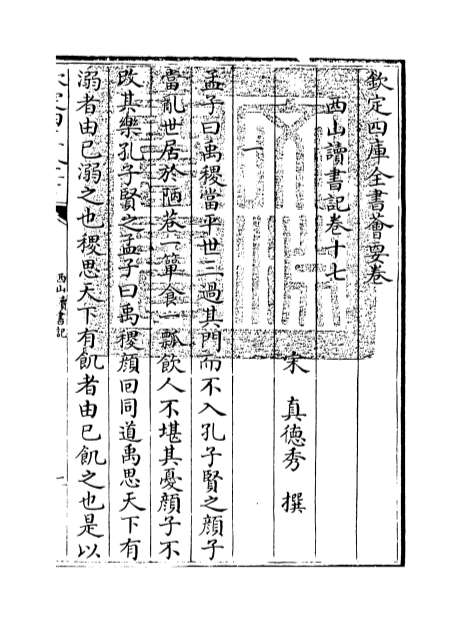 欽定四庫全書薈要卷
西山讀書記卷十七
宋 真德秀 撰
一
孟子曰禹稷當平世三過其門而不入孔子賢之顔子
當亂世居於陋巷一簞食一瓢飲人不堪其憂顔子不
改其樂孔子賢之孟子曰禹稷顔回同道禹思天下有
溺者由已溺之也稷思天下有飢者由已飢之也是以
西山讀書記
一